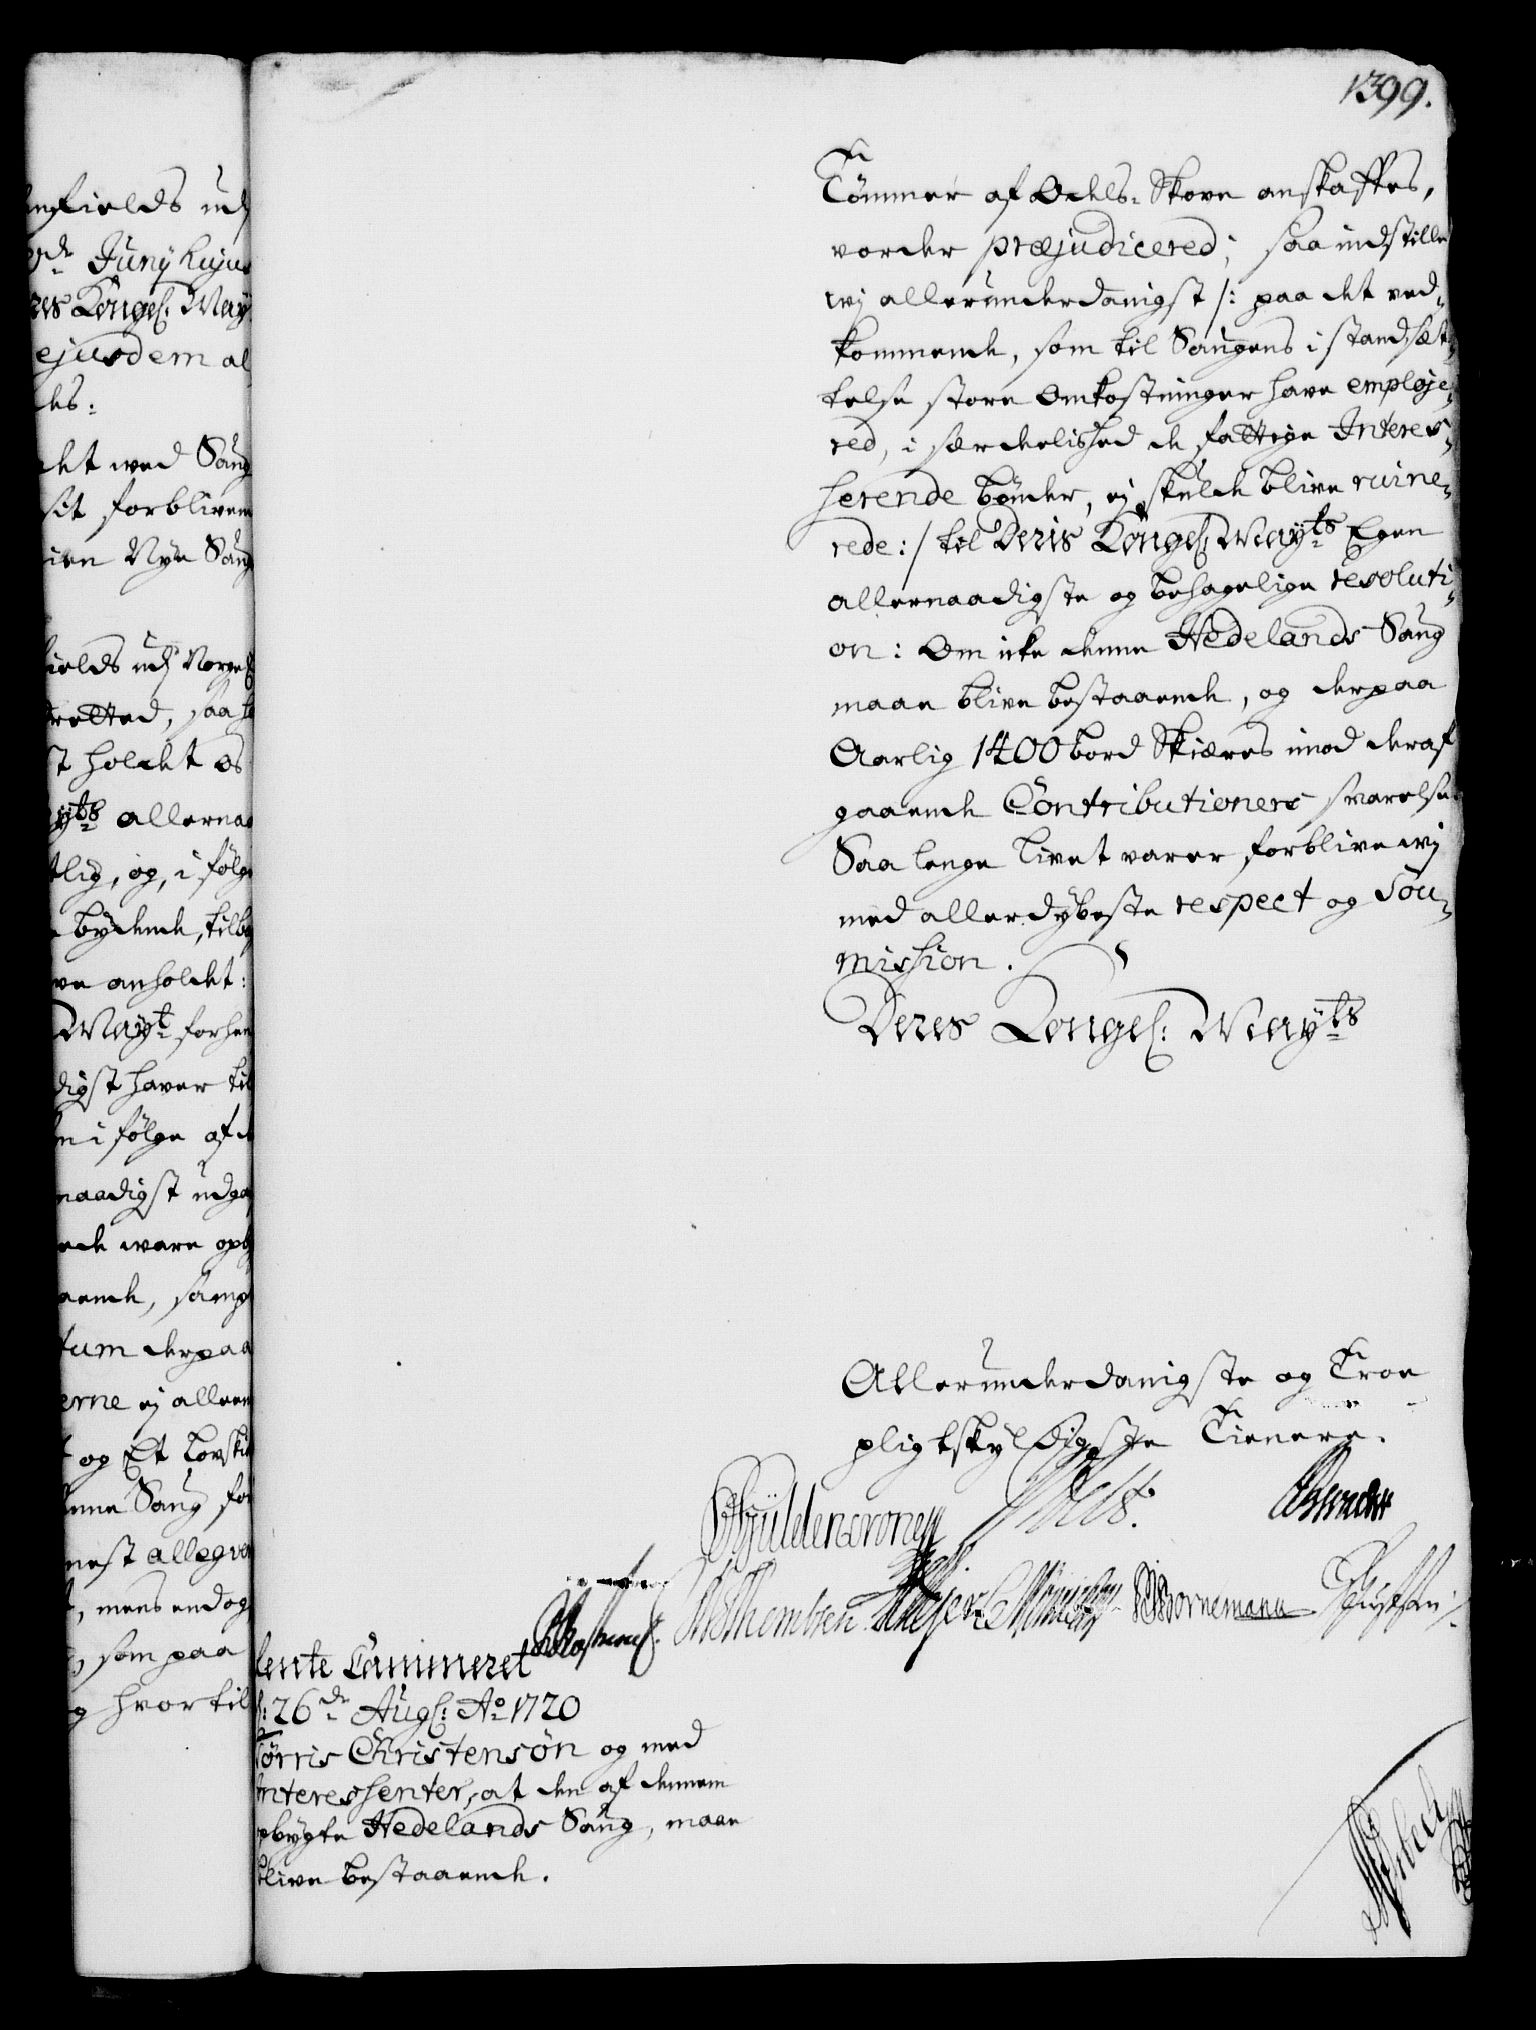 1399.
Tømmer af Odels-Skove anskaffes,
vorder præjudicered; saa indstille
wj allerunderdanigst /: paa det ved-
kommende, som til Saugens istandsæt-
telse store Omkostninger have employe-
red, i særdelished de fattige Interes-
serende bønder, ej skulde blive ruine-
rede :/ til Deris Kongel: Mayts Egen
allernaadigste og behagelige resoluti-
on: Om icke denne Hedelands Saug
maae blive bestaaende, og derpaa
Aarlig 1400 bord Skiæres imod deraf
gaaende Contributioners svarelse.
Saa lenge livet varer forblive wj
med allerdybeste respect og sou-
mission.
Deres Kongel: Mayts
Allerunderdanigste og Troe
pligtskyldigste Tienere.
Gyldencrone
WThomsen Meyer Bornemann
Rente Cammeret
d: 26de Aug: Ao 1720
Christensøn og med
Interessenter, at den af dennem
opbygte Hedelands Saug, maae
blive bestaaende.
fields udj
Juny hujus
Kongel: May
ejusdem al
des:
det wed Saug
forbliven
Nye Saug
fields udj Norge
retted, saa
holdet os
yts allernaa
lig, og, i følge
bydende, tilb
anholdet:
Mayt forhen
digst haver til
i følge af
naadigst udga
ware opb
aende, samp
tum derpaa
erne ej alleen
og Et
denne Saug for
nest allegve
mens endog
som paa
hvortil